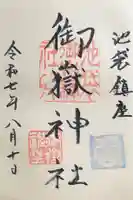 池袋鎮座
御嶽神社
令和七年八月十日